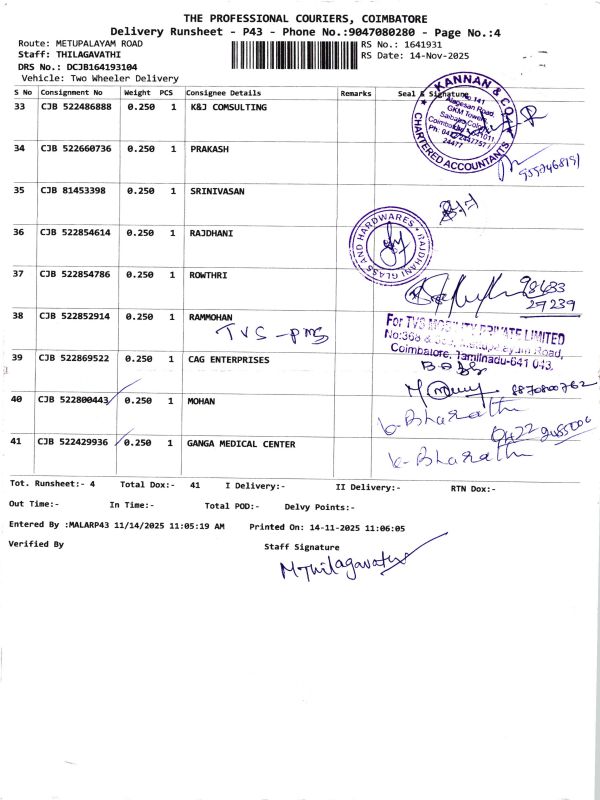 THE PROFESSIONAL COURIERS, COIMBATORE
Delivery Runsheet - P43 - Phone No.:9047080280 - Page No.:4
Route: METUPALAYAM ROAD RS No.: 1641931
Staff: THILAGAVATHI RS Date: 14-Nov-2025
DRS No.: DCJB164193104
Vehicle: Two Wheeler Delivery
S No Consignment No Weight PCS Consignee Details Remarks Seal & Signature
33 CJB 522486888 0.250 1 K&J COMSULTING
KANNAN & CO.
CHARTERED ACCOUNTANTS
34 CJB 522660736 0.250 1 PRAKASH
35 CJB 81453398 0.250 1 SRINIVASAN
36 CJB 522854614 0.250 1 RAJDHANI
RAJDHANI GLASS AND HARDWARES
37 CJB 522854786 0.250 1 ROWTHRI
98433
27239
38 CJB 522852914 0.250 1 RAMMOHAN
TVS - PMS
For TVS MOBILITY PRIVATE LIMITED
Coimbatore, Tamilnadu-641 043.
39 CJB 522869522 0.250 1 CAG ENTERPRISES
8870800762
40 CJB 522800443 0.250 1 MOHAN
K-Bharathi
0422
41 CJB 522429936 0.250 1 GANGA MEDICAL CENTER
K-Bharathi
Tot. Runsheet:- 4 Total Dox:- 41 I Delivery:- II Delivery:- RTN Dox:-
Out Time:- In Time:- Total POD:- Delvy Points:-
Entered By :MALARP43 11/14/2025 11:05:19 AM Printed On: 14-11-2025 11:06:05
Verified By Staff Signature
M Thilagavathi